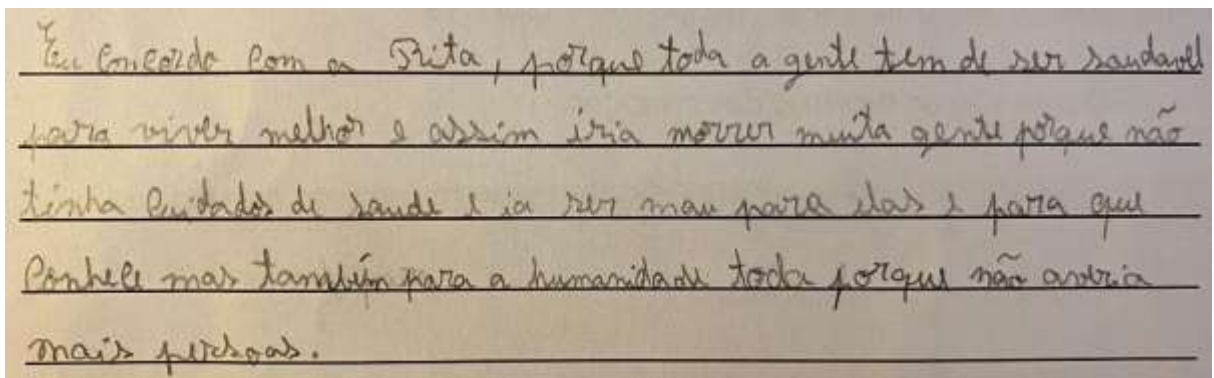 Eu concordo com a Rita, porque toda a gente tem de ser saudavel
para viver melhor e assim iria morrer muita gente porque não
tinha cuidados de saude e ia ser mau para elas e para que
conhece mas também para a humanidade toda porque não averia
mais pessoas.